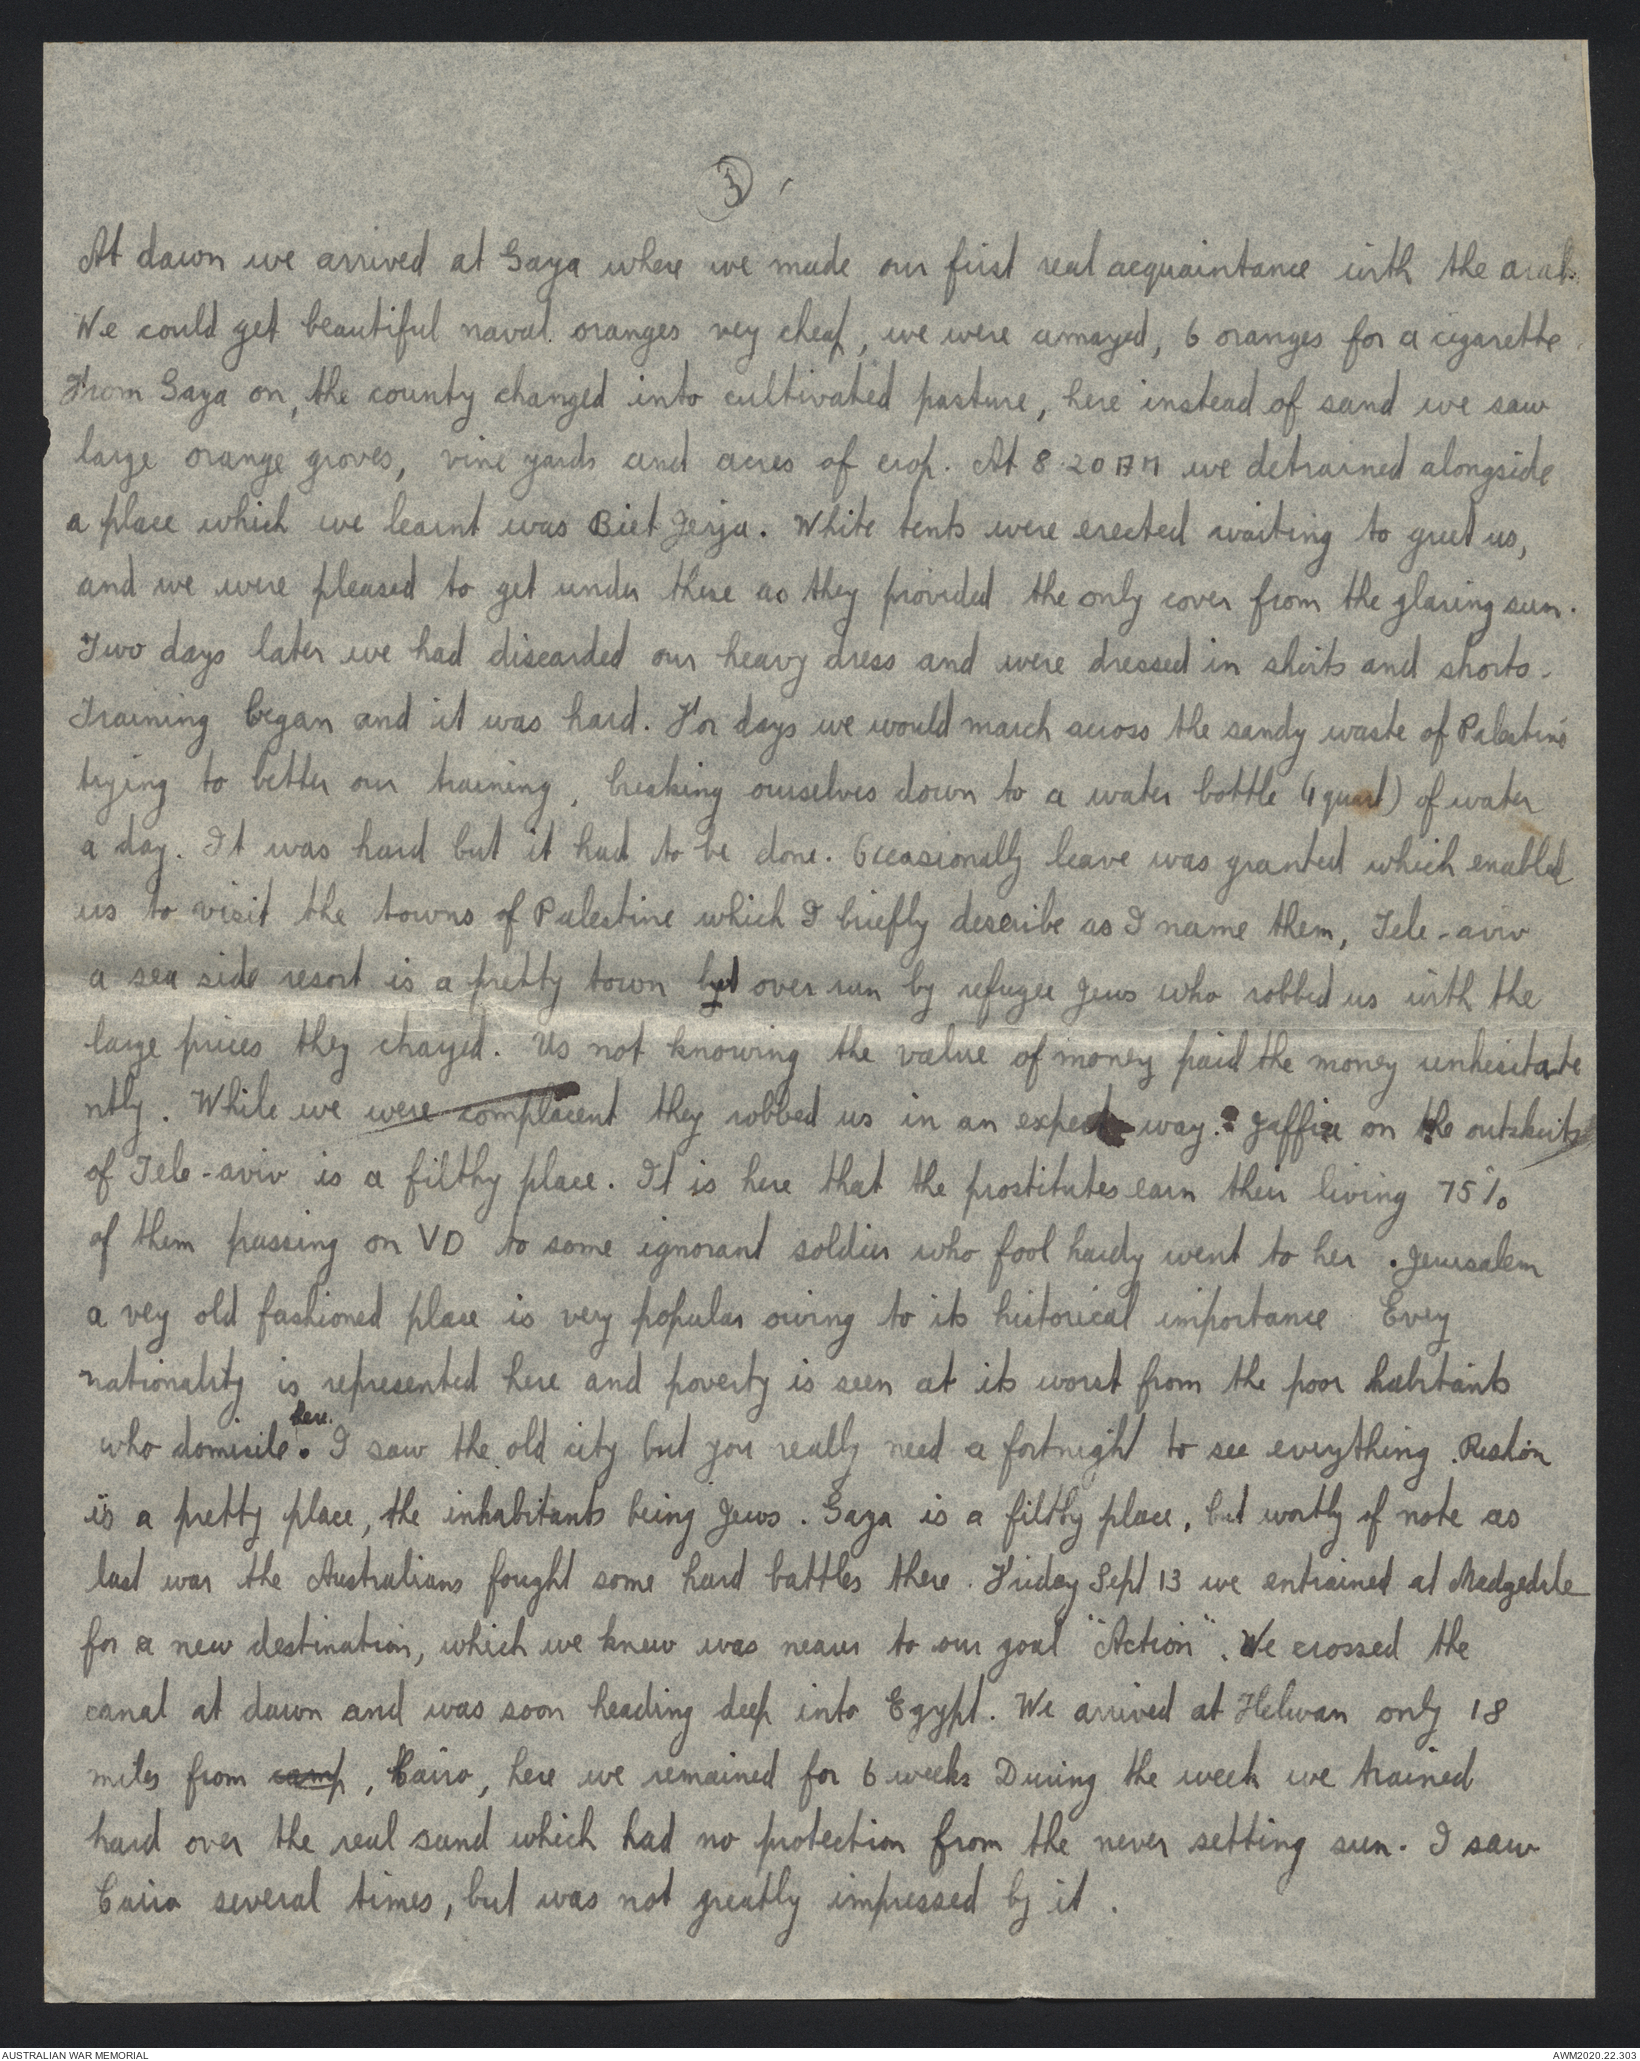 3
At dawn we arrived at Gaza where we made our first real acquaintance with the arab.
We could get beautiful naval oranges vey cheap, we were amazed, 6 oranges for a cigarette.
From Gaza on, the county changed into cultivated pasture, here instead of sand we saw
large orange groves, vine yards and acres of crop. At 8.20 AM we detrained alongside
a place which we learnt was Biet Jerja. White tents were erected waiting to greet us,
and we were pleased to get under these as they provided the only cover from the glaring sun.
Two days later we had discarded our heavy dress and were dressed in shirts and shorts.
Training began and it was hard. For days we would march across the sandy waste of Palestine
trying to better our training, breaking ourselves down to a water bottle (1 quart) of water
a day. It was hard but it had to be done. Occasionally leave was granted which enabled
us to visit the towns of Palestine which I briefly describe as I name them, Tele-aviv
a sea side resort is a pretty town but over run by refugee Jews who robbed us with the
large prices they charged. Us not knowing the value of money paid the money unhesitate
ntly. While we were complacent they robbed us in an expert way. Jaffia on the outskirts
of Tele-aviv is a filthy place. It is here that the prostitutes earn their living 75%
of them passing on VD to some ignorant soldier who fool hardy went to her. Jerusalem
a vey old fashioned place is very popular owing to its historical importance Evey
nationality is represented here and poverty is seen at its worst from the poor habitants
who domisile here. I saw the old city but you really need a fortnight to see everything. Rishon
is a pretty place, the inhabitants being Jews. Gaza is a filthy place, but worthy of note as
last war the Australians fought some hard battles there. Friday Sept 13 we entrained at Medgedale
for a new destination, which we knew was nearer to our goal "Action". We crossed the
canal at dawn and was soon heading deep into Egypt. We arrived at Helwan only 18
miles from camp, Cairo, here we remained for 6 weeks During the week we trained
hard over the real sand which had no protection from the never setting sun. I saw
Cairo several times, but was not greatly impressed by it.
AUSTRALIAN WAR MEMORIAL
AWM2020.22.303